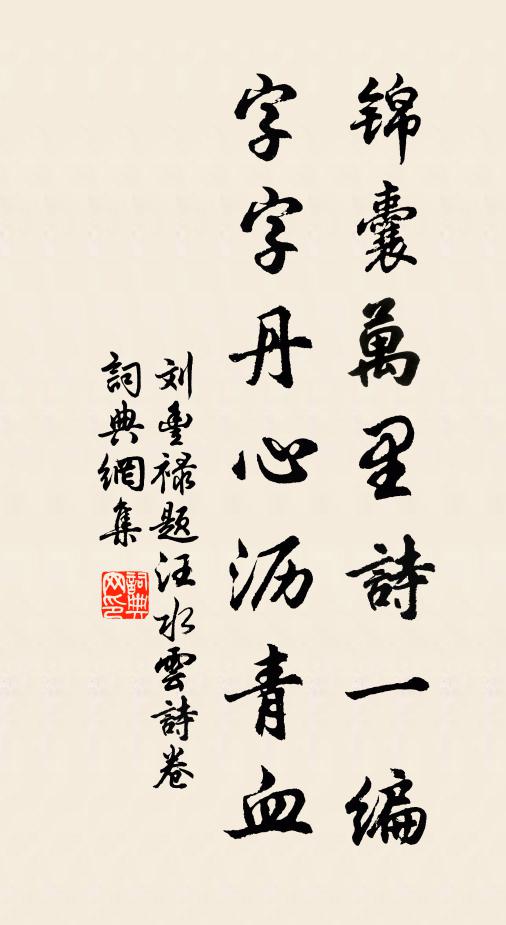 锦囊萬里詩一编
字字丹心沥青血
刘豊禄题汪水雲詩卷
詞典網集
詞典网印